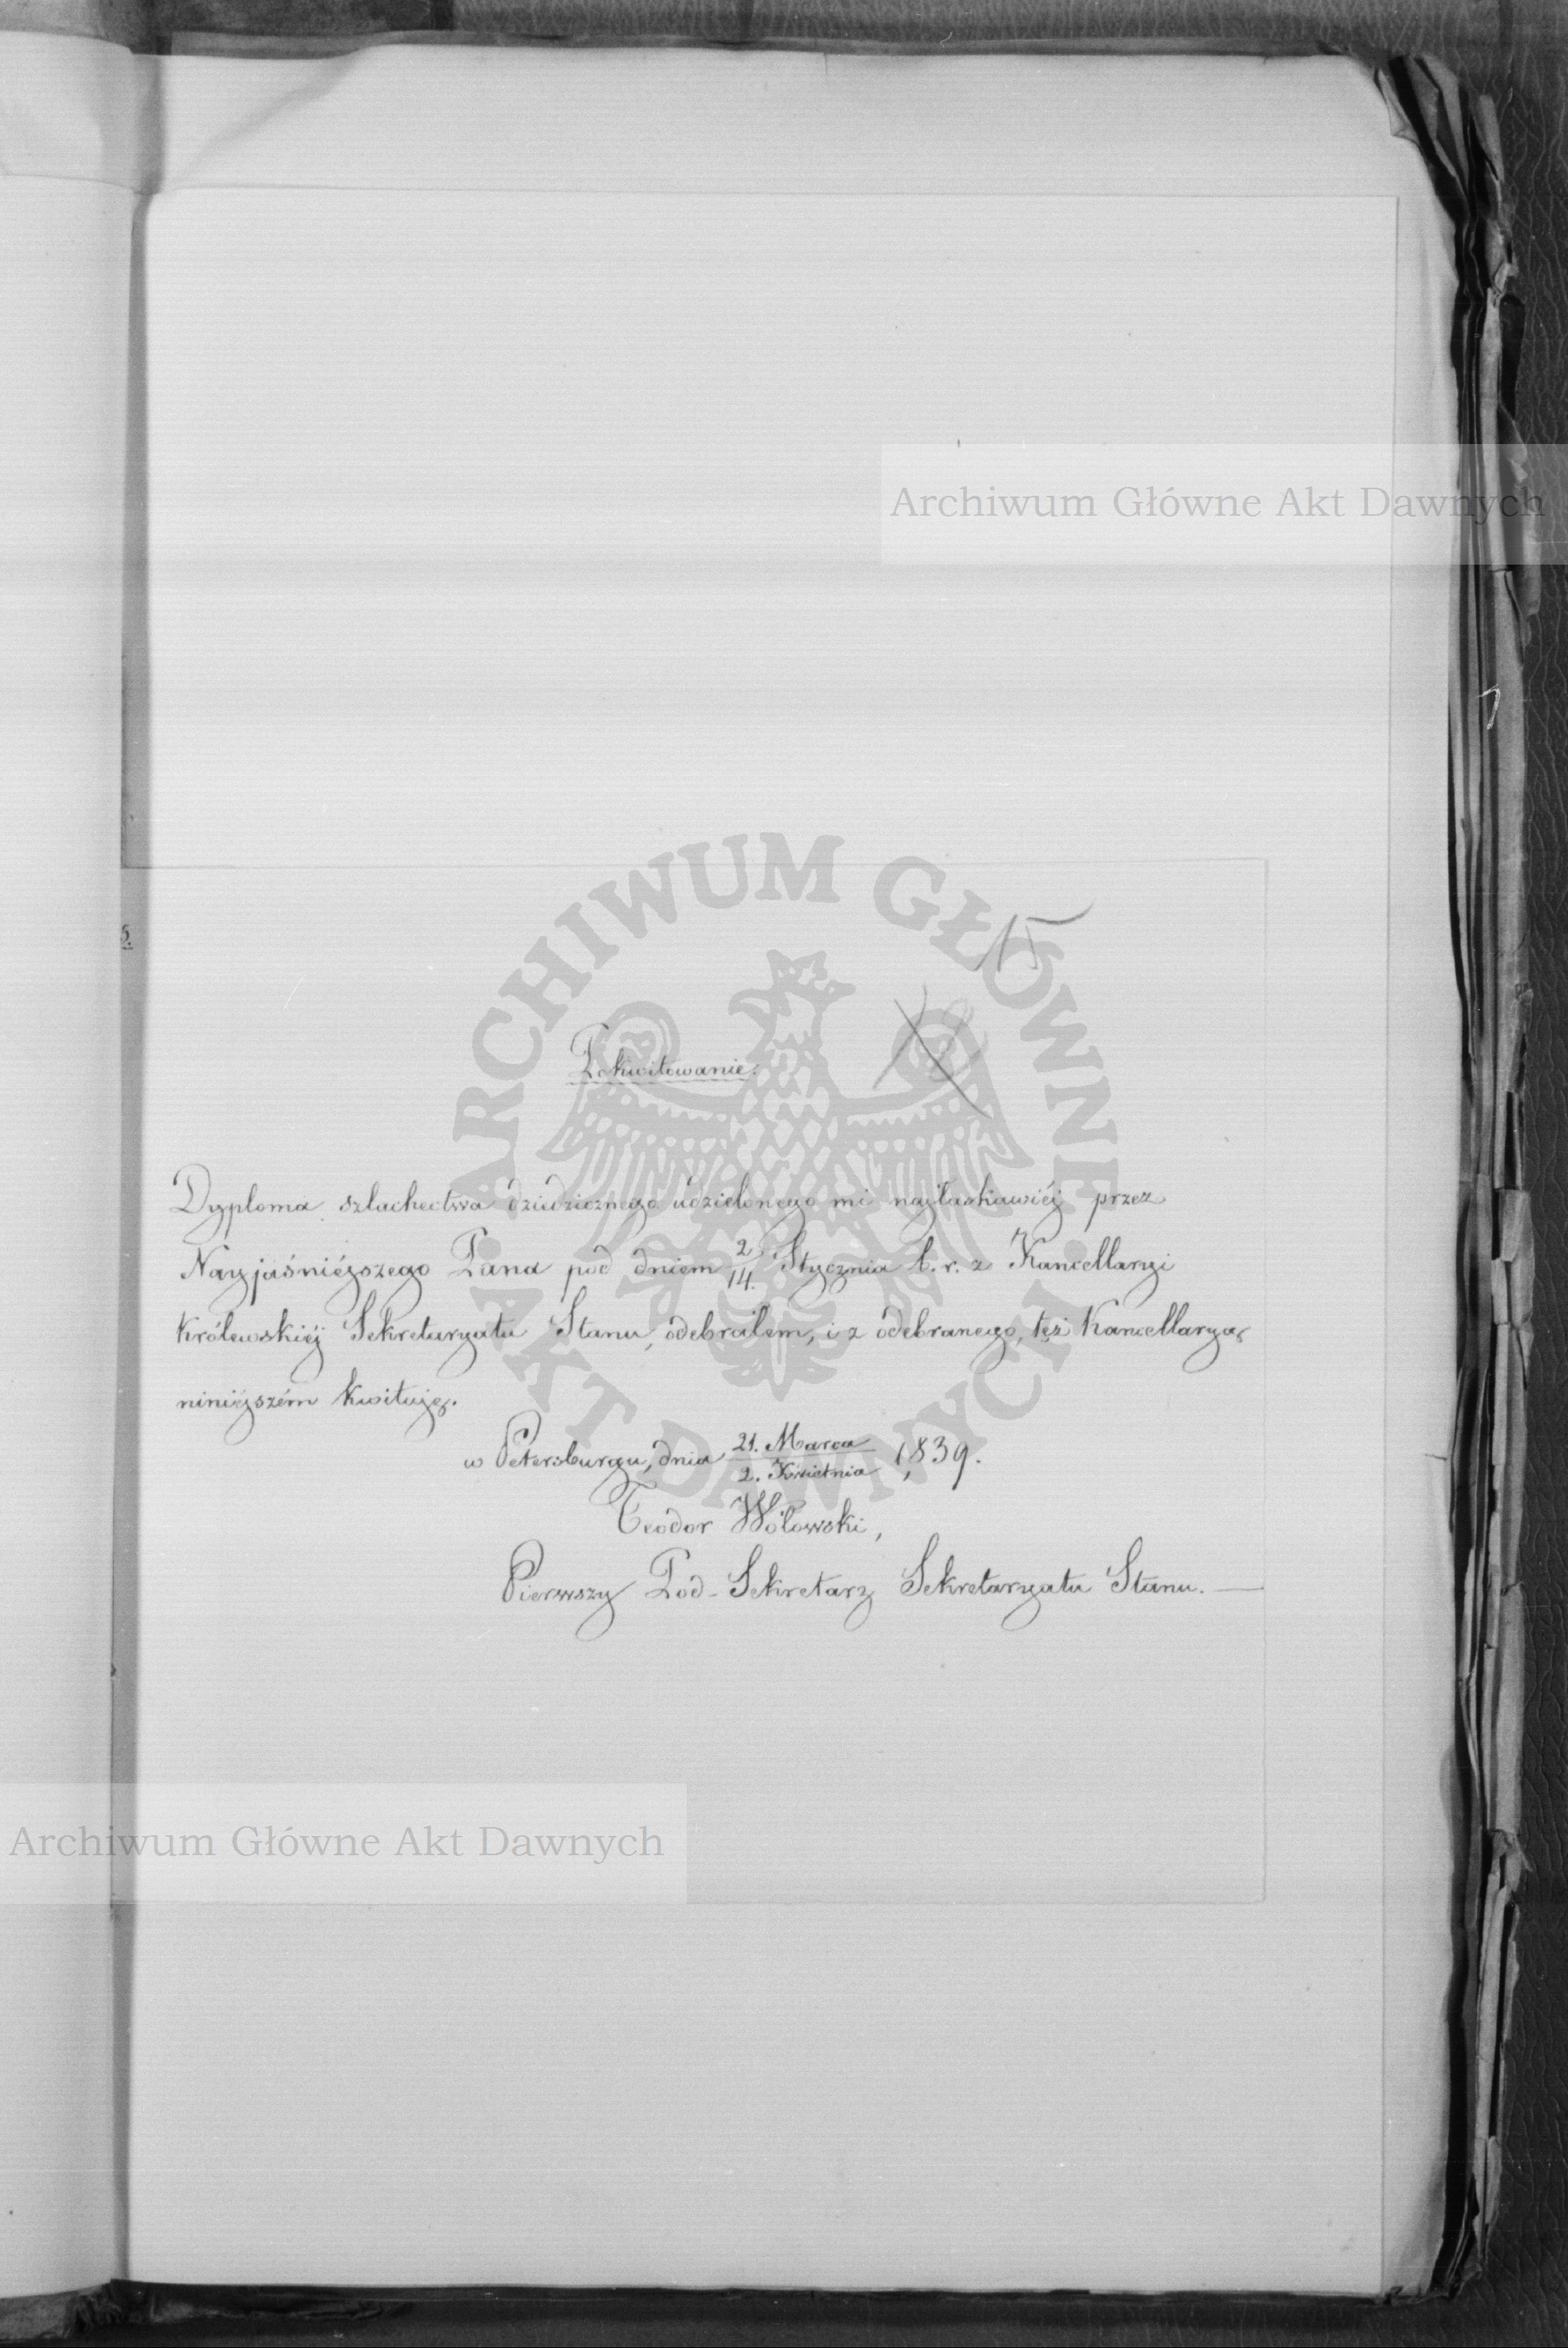 Archiwum Główne Akt Dawnych
ARCHIWUM GŁÓWNE AKT DAWNYCH
15
Pokwitowanie:
Dyploma szlachectwa dziedzicznego udzielonego mi najłaskawiéj przez
Nayjaśniéjszego Pana pod dniem 2/14. Stycznia b. r. z Kancellaryi
Królewskiéj Sekretaryatu Stanu, odebrałem, i z odebranego, też Kancellaryą
niniéjszém kwituję.
w Petersburgu, dnia 21. Marca / 2. Kwietnia 1839.
Teodor Wołowski,
Pierwszy Pod-Sekretarz Sekretaryatu Stanu. —
Archiwum Główne Akt Dawnych